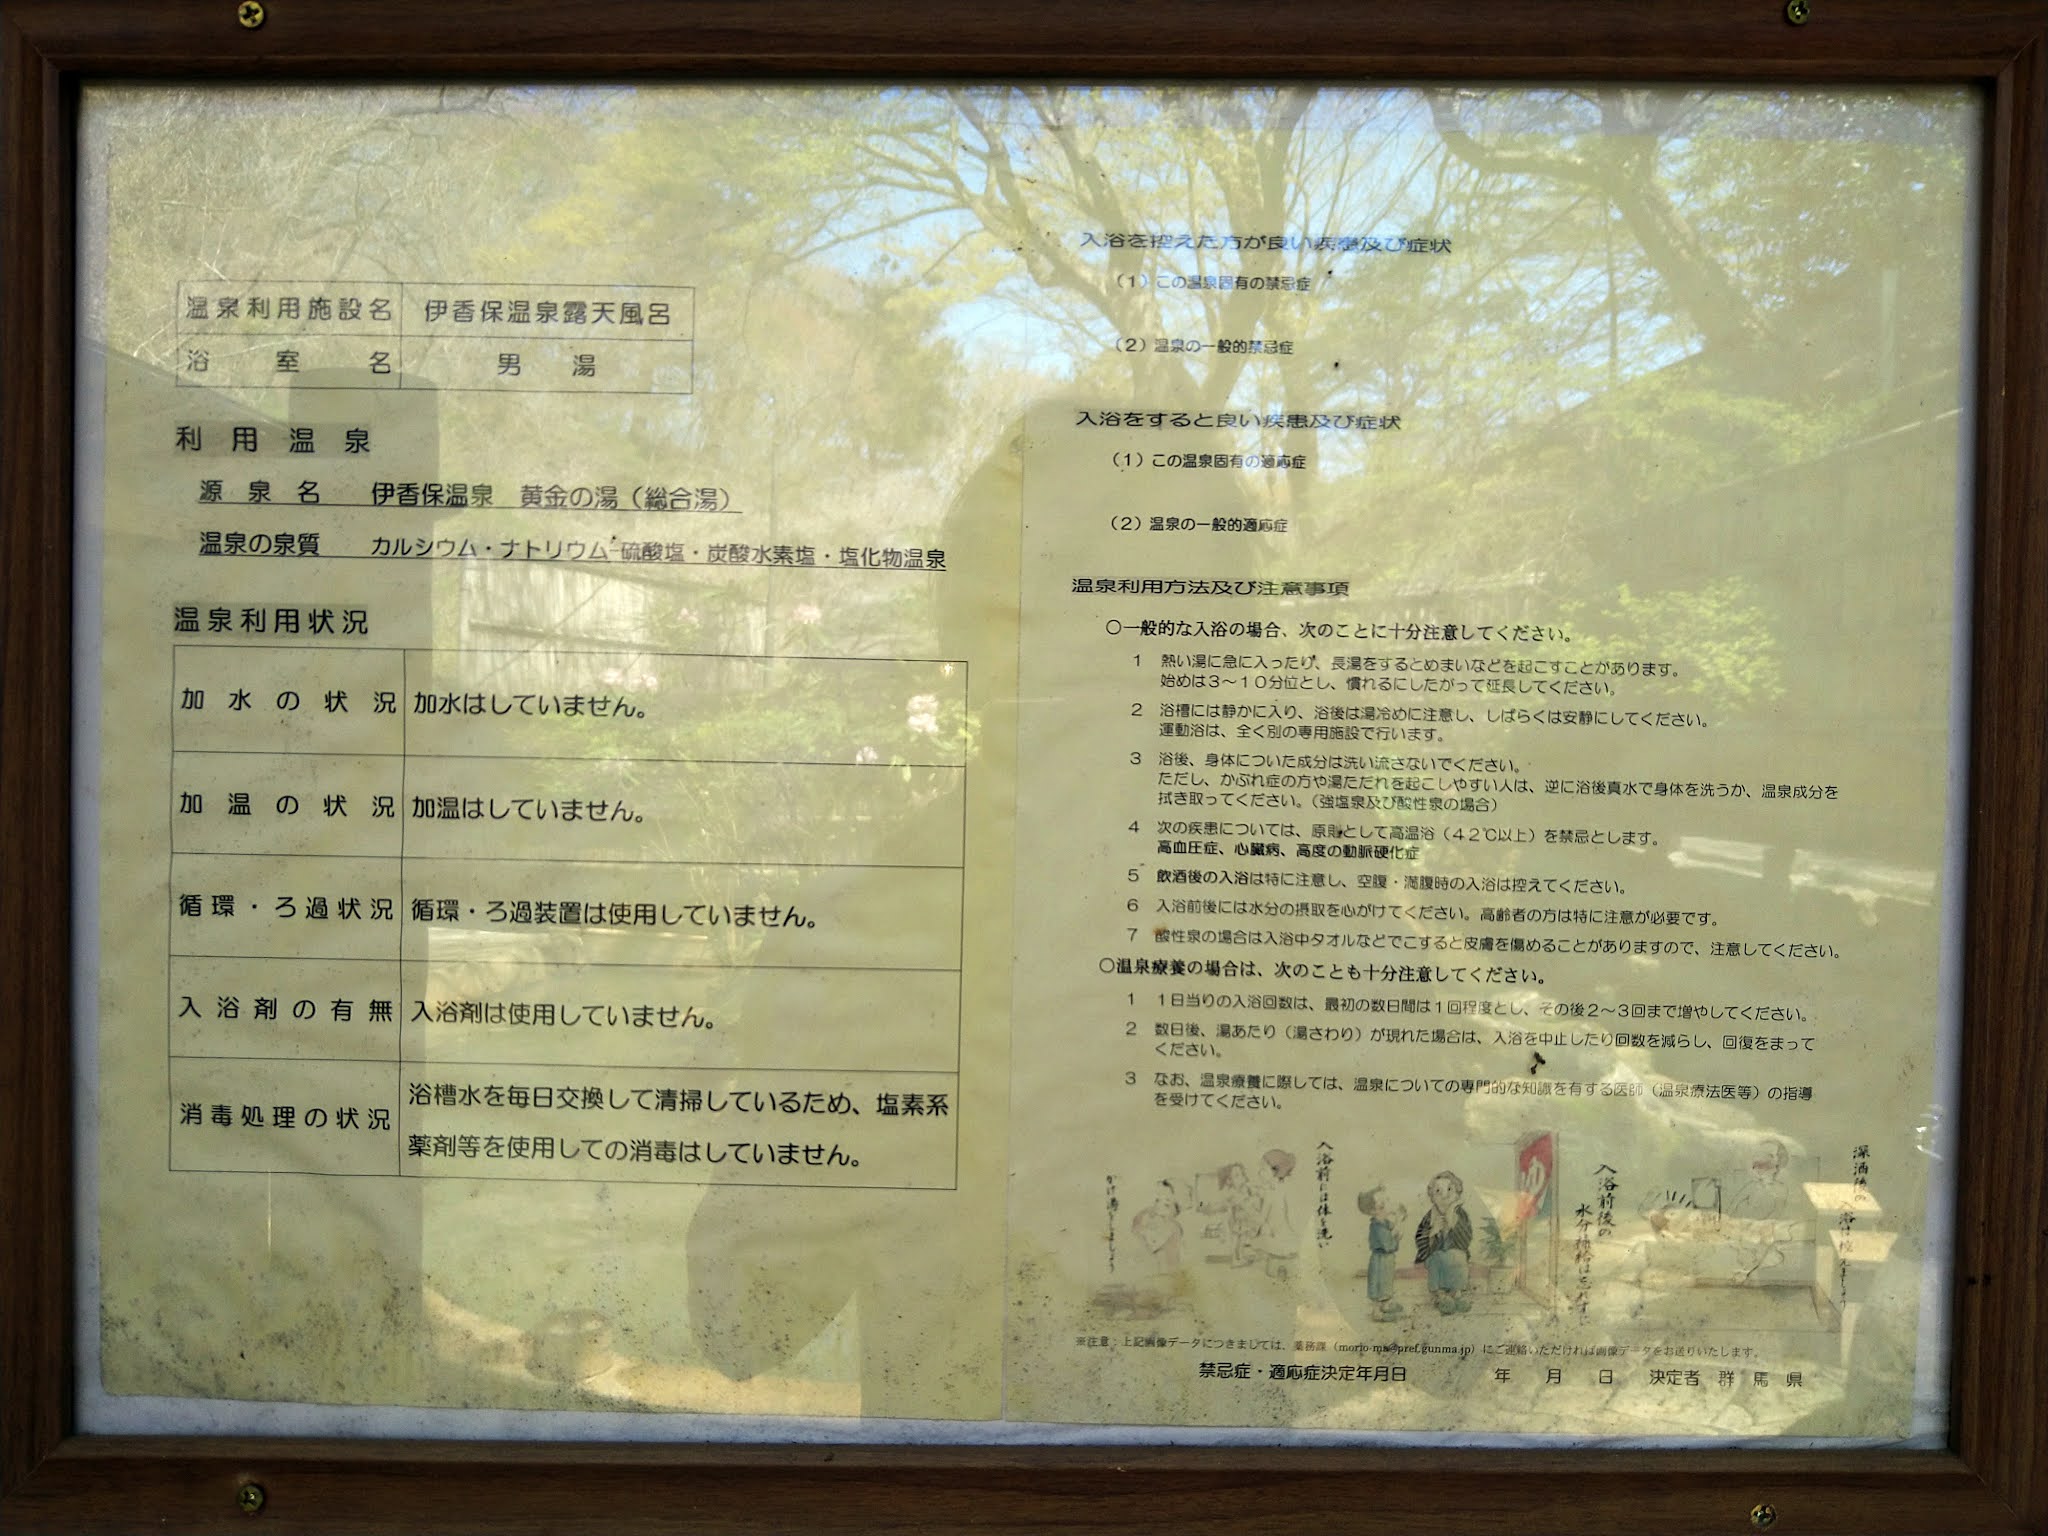 温泉利用施設名 伊香保温泉露天風呂
浴室名 男湯
利用温泉
源泉名 伊香保温泉 黄金の湯（総合湯）
温泉の泉質 カルシウム・ナトリウム-硫酸塩・炭酸水素塩・塩化物温泉
温泉利用状況
加水の状況 加水はしていません。
加温の状況 加温はしていません。
循環・ろ過状況 循環・ろ過装置は使用していません。
入浴剤の有無 入浴剤は使用していません。
消毒処理の状況 浴槽水を毎日交換して清掃しているため、塩素系
薬剤等を使用しての消毒はしていません。
入浴を控えた方が良い疾患及び症状
（1）この温泉固有の禁忌症
（2）温泉の一般的禁忌症
入浴をすると良い疾患及び症状
（1）この温泉固有の適応症
（2）温泉の一般的適応症
温泉利用方法及び注意事項
○一般的な入浴の場合、次のことに十分注意してください。
1 熱い湯に急に入ったり、長湯をするとめまいなどを起こすことがあります。
始めは３～１０分位とし、慣れるにしたがって延長してください。
2 浴槽には静かに入り、浴後は湯冷めに注意し、しばらくは安静にしてください。
運動浴は、全く別の専用施設で行います。
3 浴後、身体についた成分は洗い流さないでください。
ただし、かぶれ症の方や湯ただれを起こしやすい人は、逆に浴後真水で身体を洗うか、温泉成分を
拭き取ってください。（強塩泉及び酸性泉の場合）
4 次の疾患については、原則として高温浴（４２℃以上）を禁忌とします。
高血圧症、心臓病、高度の動脈硬化症
5 飲酒後の入浴は特に注意し、空腹・満腹時の入浴は控えてください。
6 入浴前後には水分の摂取を心がけてください。高齢者の方は特に注意が必要です。
7 酸性泉の場合は入浴中タオルなどでこすると皮膚を傷めることがありますので、注意してください。
○温泉療養の場合は、次のことも十分注意してください。
1 １日当りの入浴回数は、最初の数日間は１回程度とし、その後２～３回まで増やしてください。
2 数日後、湯あたり（湯さわり）が現れた場合は、入浴を中止したり回数を減らし、回復をまって
ください。
3 なお、温泉療養に際しては、温泉についての専門的な知識を有する医師（温泉療法医等）の指導
を受けてください。
かけ湯をしましょう
入浴前には体を洗い
ゆ
入浴前後の
水分補給は忘れずに
深酒後の
入浴は控えましょう
※注意：上記画像データにつきましては、薬務課（morio-ma@pref.gunma.jp）にご連絡いただければ画像データをお送りいたします。
禁忌症・適応症決定年月日 年 月 日 決定者 群馬県